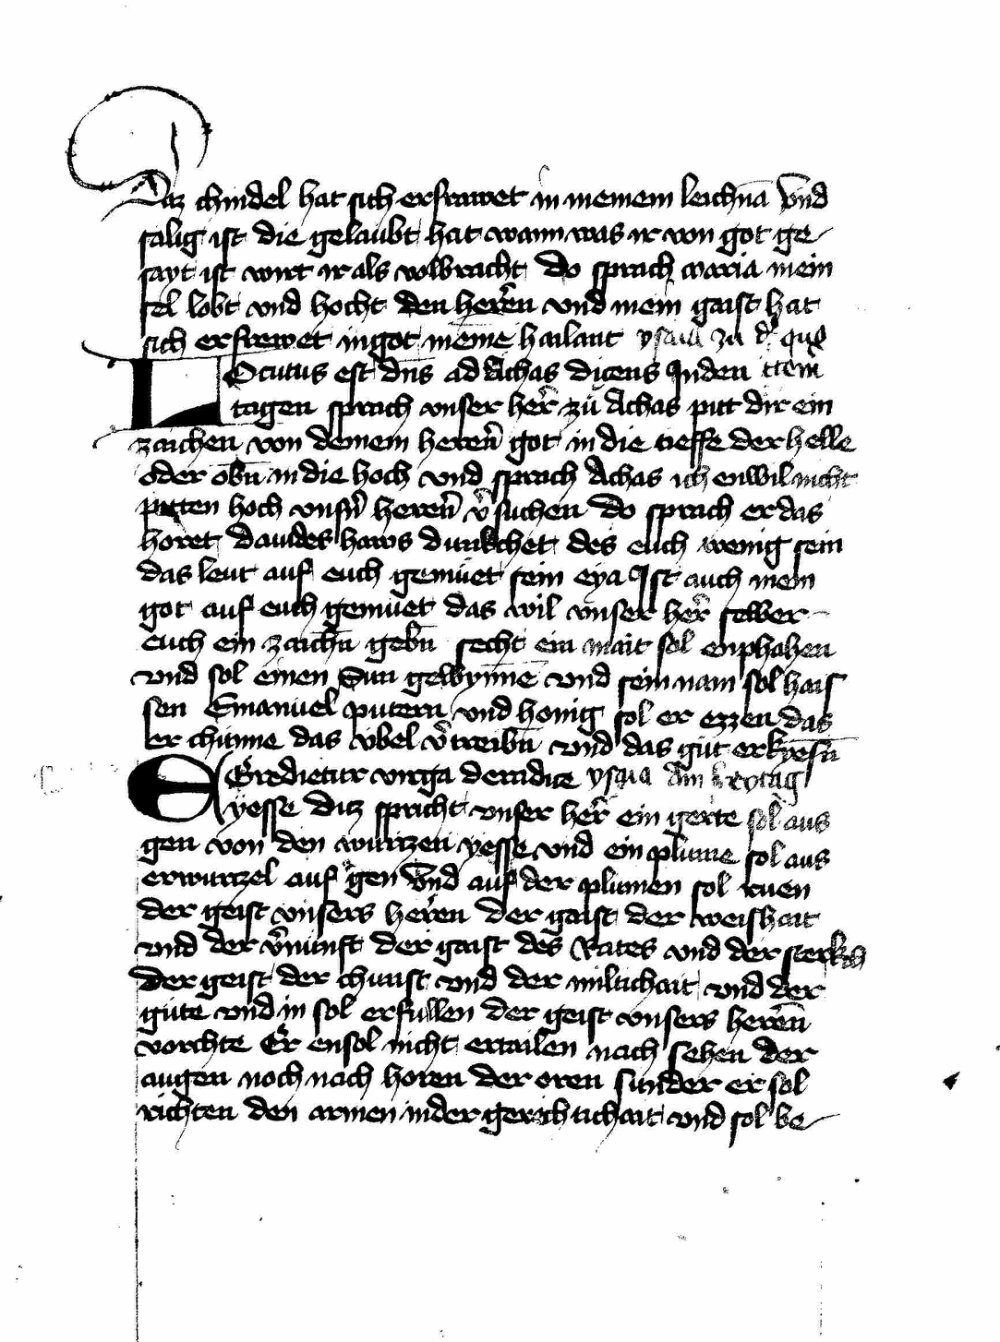 Daz chindel hat sich erfrawet in meinem leichnā Vnd
salig ist die gelaubt hat wann was ir von got ge
sayt ist wirt ir als volbracht Do sprach maria mein
sel lobt vnd hocht den herrē vnd mein gaist hat
sich erfrewet in got meinē hailant ysaia zu d
Locutus est dn̄s ad Achas dicens In den item
tagen sprach vnser her̄ zu Achas pitt dir ein
zaichen von deinem heren̄ got in die tieffe der helle
oder obn̄ in die hoch vnd sprach Achas ich enwil nicht
pitten hoch vnsn̄ heren̄ v̄suchen do sprach er das
horet dauides haws dunkchet des euch wenig sein
das leut auf euch gemuet sein eya Ist auch mein
got auf euch gemuet das wil vnser her̄ selber
euch ein zaichn̄ gebn̄ secht ein mait sol enphahen
vnd sol einen Sun gewynnē vnd sein nam sol hais
sen Emanuel putern vnd honig sol er ezzen das
er chunne das vbel v̄treibn̄ vnd das gut erkyesn̄
EGredietur virga de radice ysaia Am freytag
yesse Ditz spricht vnser her̄ ein gerte sol aus
gen von den wurtzen yesse vnd ein plume sol aus
er wurtzel auf gen Vnd auf der plumen sol ruen
der geist vnsers herren der gaist der weishait
vnd der v̄nunft der gaist des Rates vnd der sterkch
der geist der chunst vnd der miltichait vnd der
gute vnd in sol erfullen der geist vnsers heren̄
vorchte Er ensol nicht ertailen nach sehen der
augen noch nach horen der oren sunder er sol
richten den armen in der gerichtichait vnd sol be